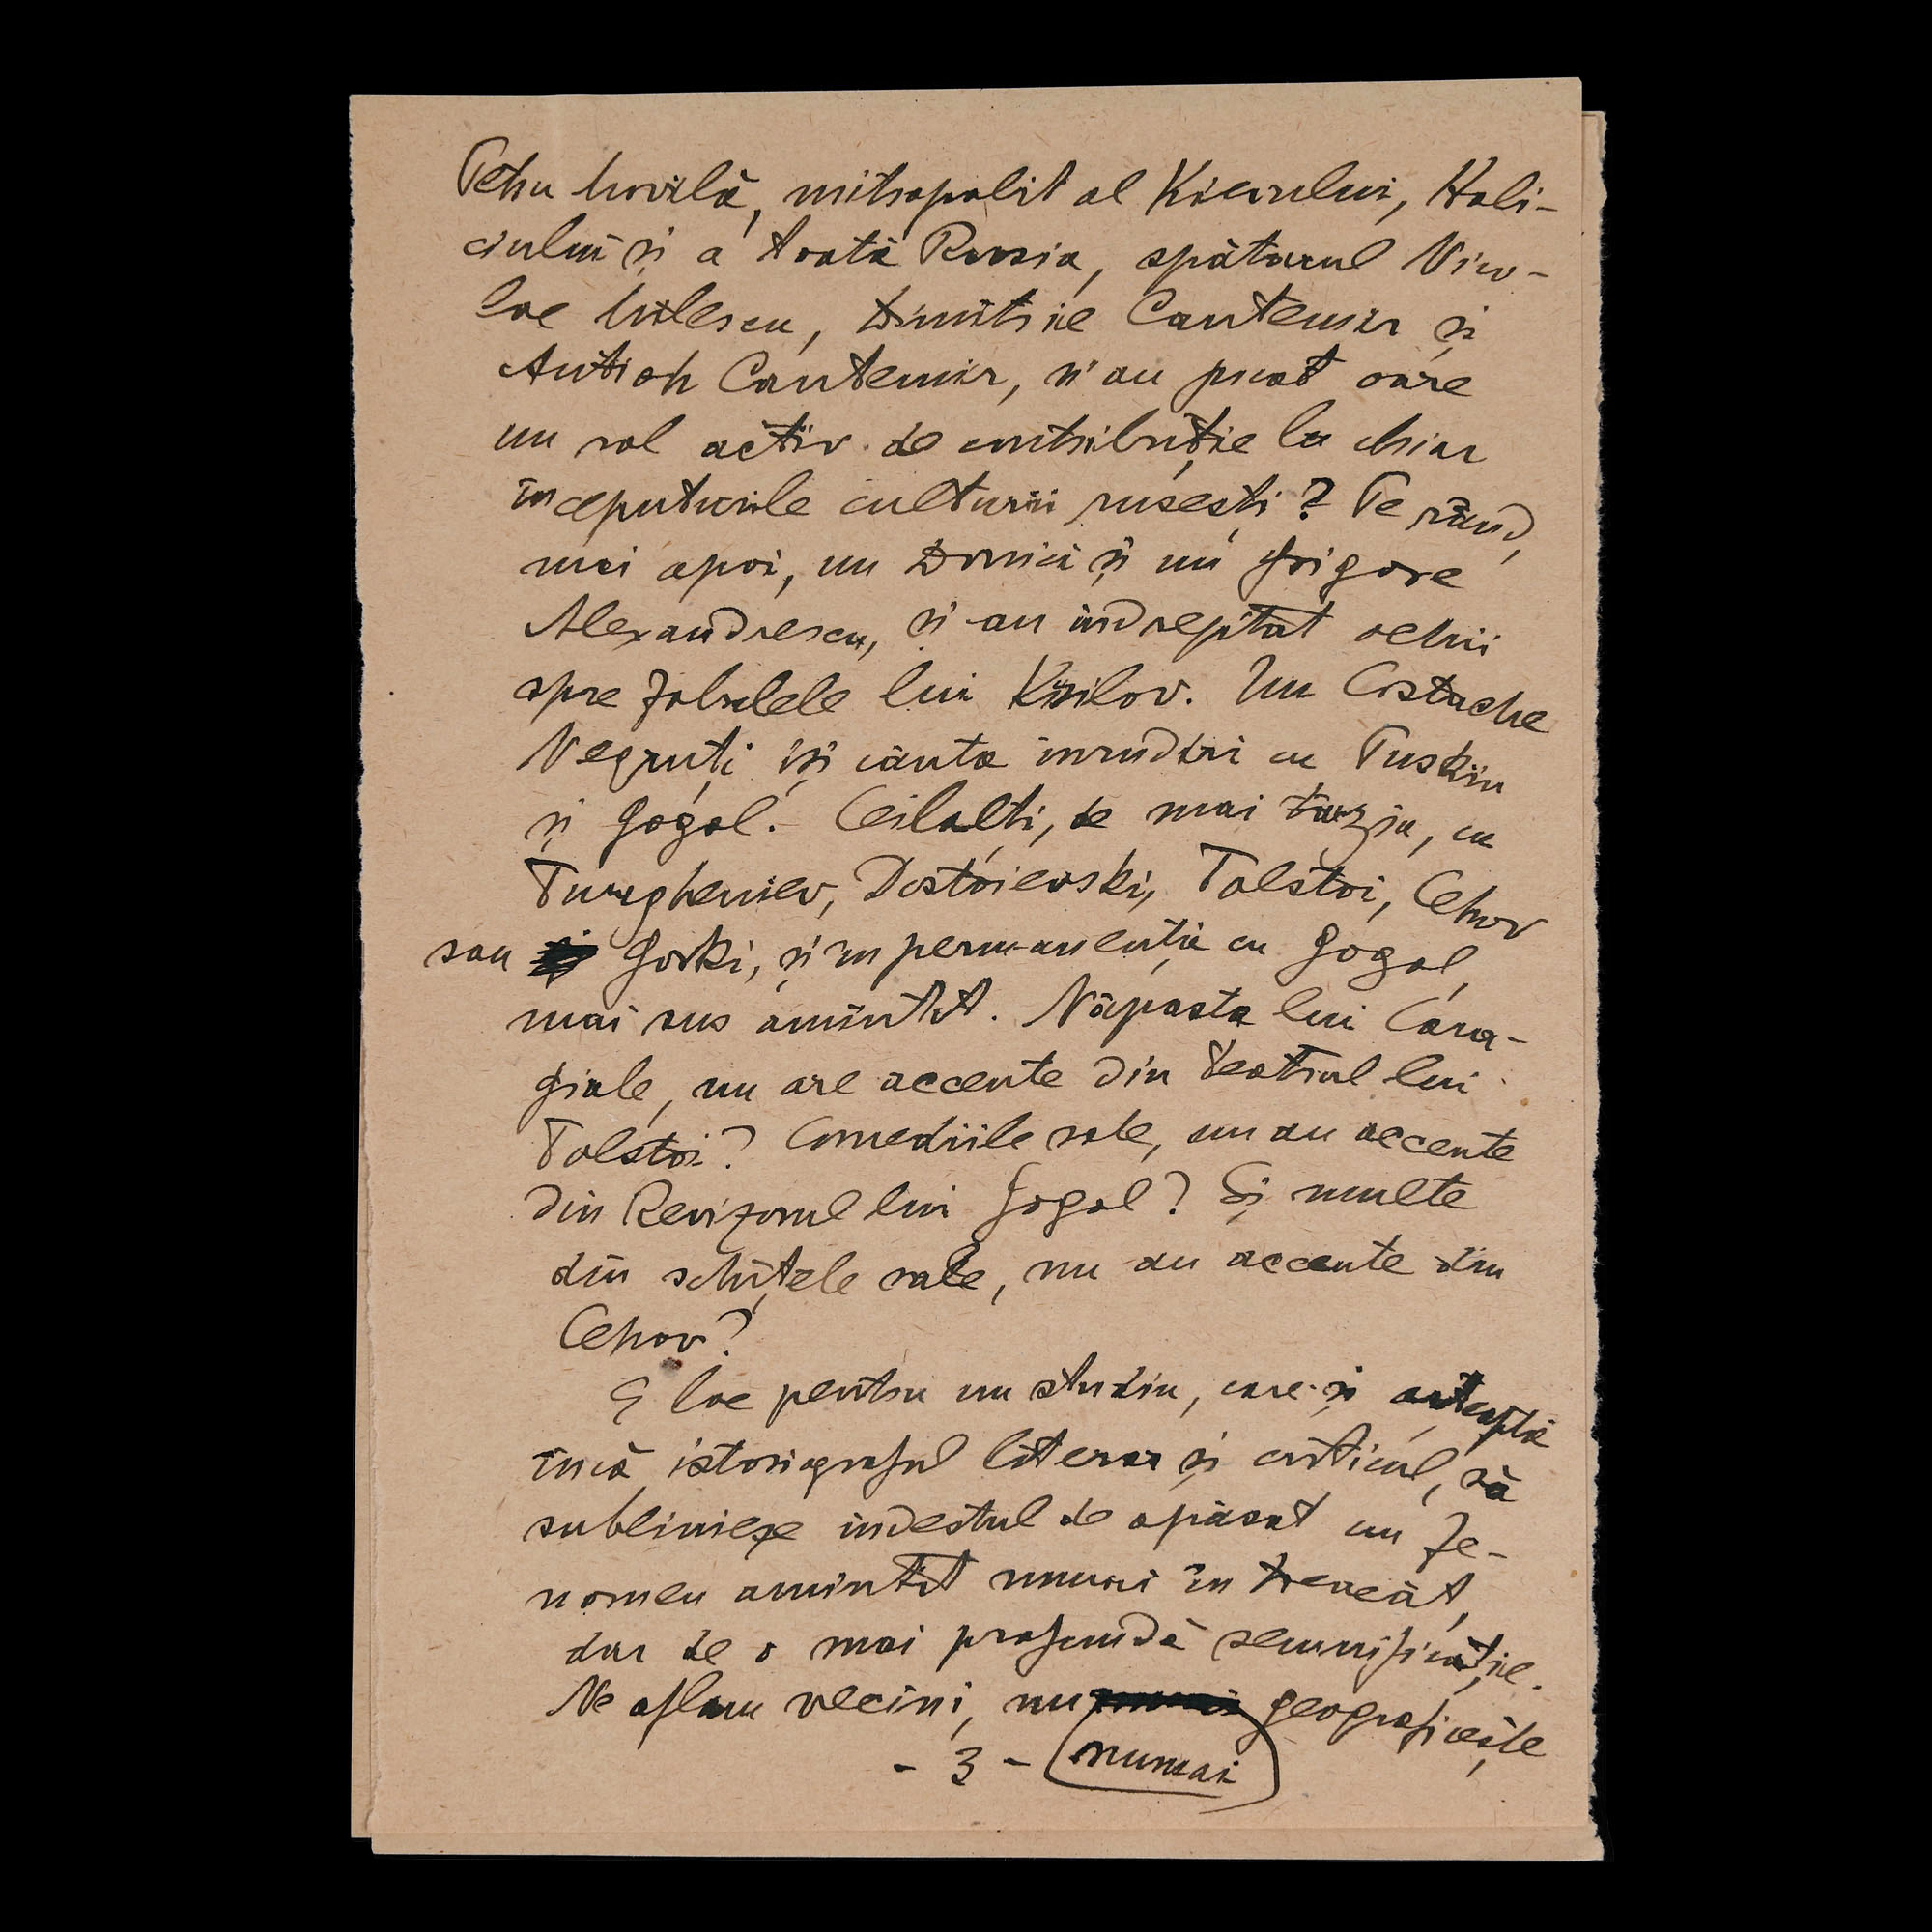 Petru Movilă, mitropolit al Kievului, Hali-
ciului și a toată Rusia, spătarul Nico-
lae Milescu, Dimitrie Cantemir și
Antioh Cantemir, n'au jucat oare
un rol activ de contribuție la chiar
începuturile culturii rusești? Pe rând,
mai apoi, un Donici și un Grigore
Alexandrescu, și-au îndreptat ochii
spre fabulele lui Krîlov. Un Costache
Negruți își căuta înrudiri cu Pușkin
și Gogol. Ceilalți, de mai târziu, cu
Turgheniev, Dostoievski, Tolstoi, Cehov
sau Gorki, și în permanență cu Gogol,
mai sus amintit. Năpasta lui Cara-
giale, nu are accente din teatrul lui
Tolstoi? Comediile sale, nu au accente
din Revizorul lui Gogol? Și multe
din schițele sale, nu au accente din
Cehov?
E loc pentru un studiu, care-și așteaptă
încă istoriograful literar și criticul, să
sublinieze îndestul de apăsat un fe-
nomen amintit numai în treacăt,
dar de o mai profundă semnificație.
Ne aflam vecini, nu numai geograficește
- 3 -